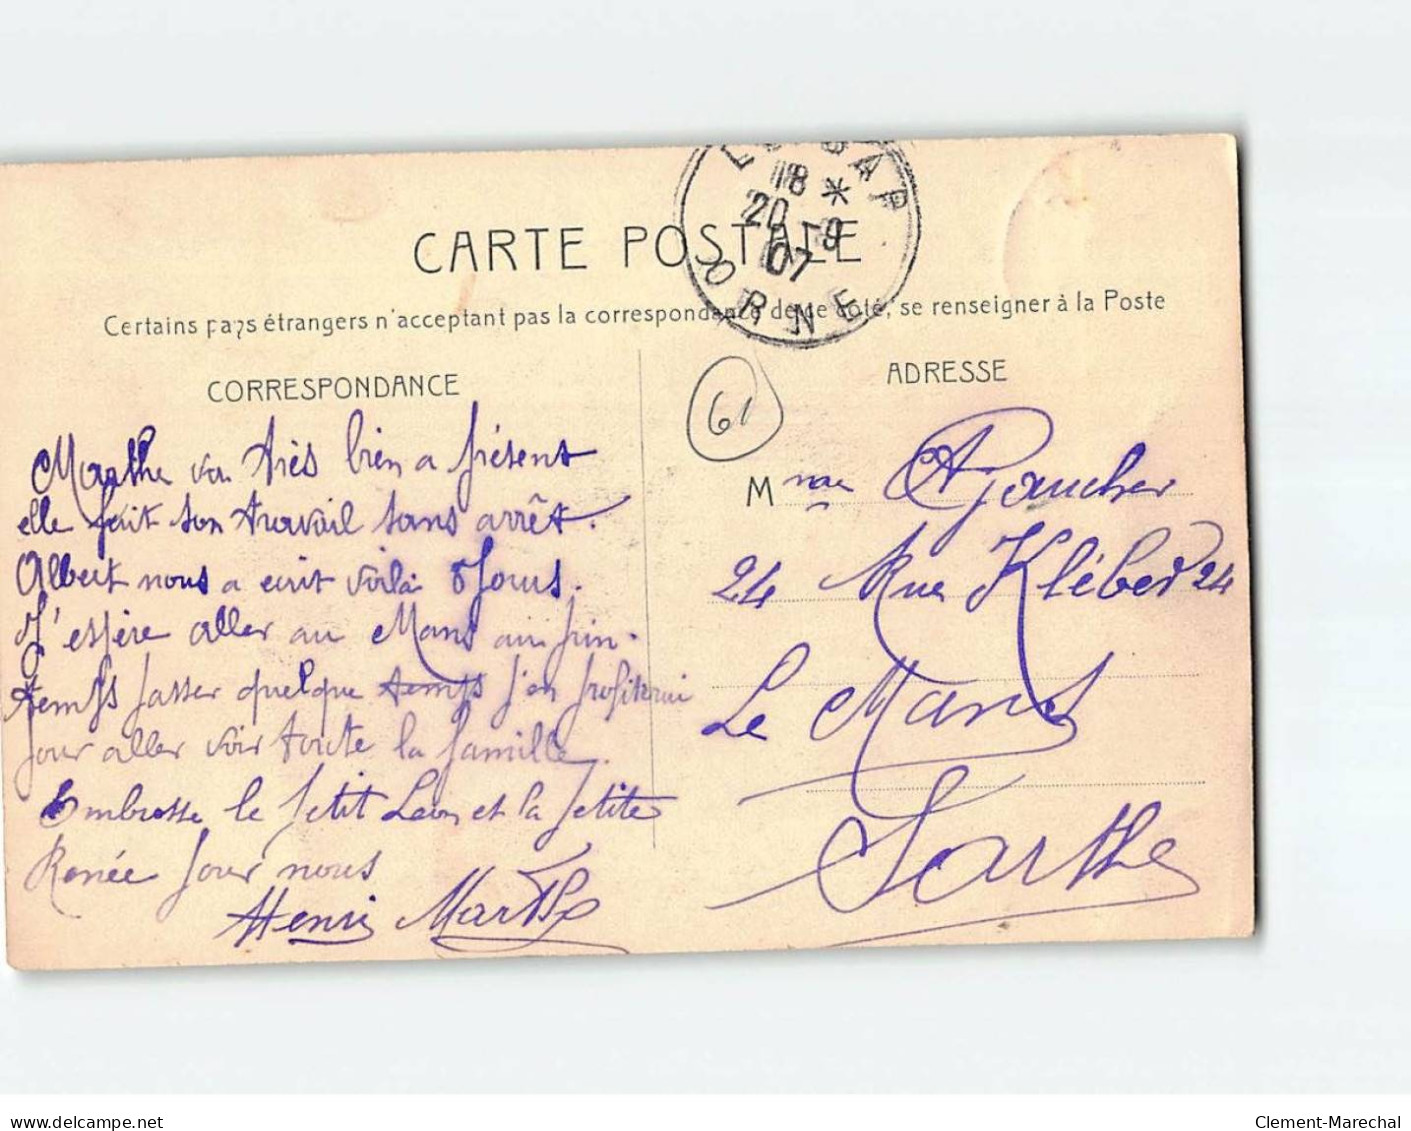 CARTE POSTALE
18 *
20 -9
07
ORNE
Certains pays étrangers n'acceptant pas la correspondance de ce côté, se renseigner à la Poste
CORRESPONDANCE
Marthe va très bien a présent
elle fait son travail sans arrêt.
Albert nous a ecrit voilà 8 Jours.
J'espère aller au Mans au prin-
temps passer quelque temps j'en profiterai
pour aller voir toute la famille.
Embrasse le petit Léon et la petite
Renée pour nous
Henri Marthe
61
ADRESSE
Mme A Gaucher
24 Rue Kléber 24
Le Mans
Sarthe
delcampe.net
Clement-Marechal